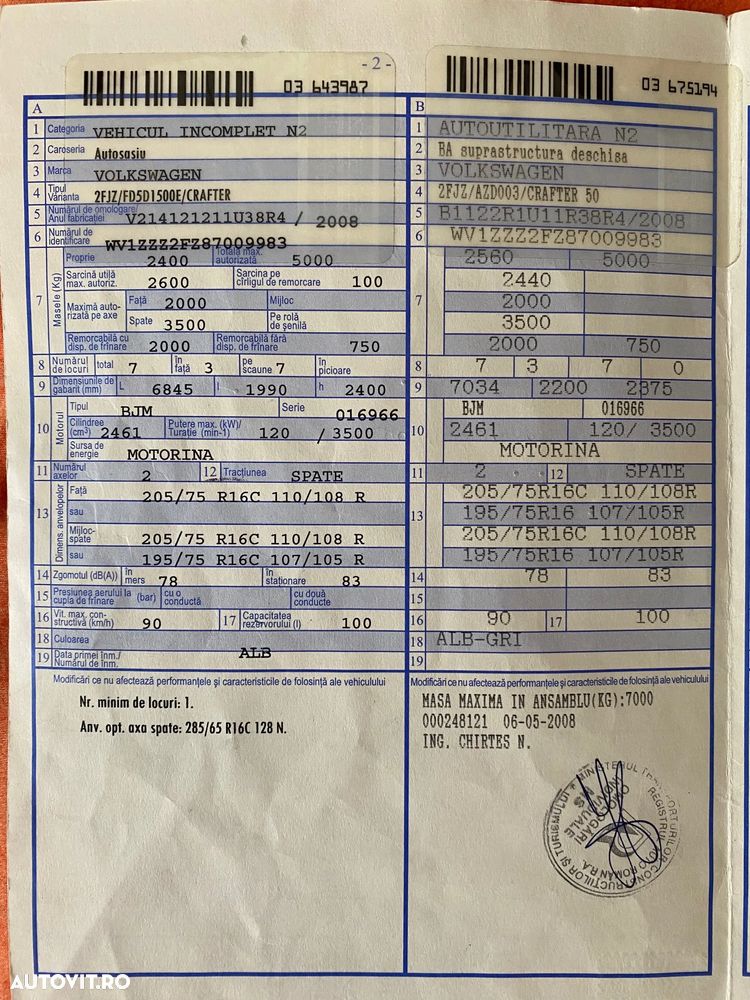 - 2 -
03 643987
03 675194
A
1 Categoria VEHICUL INCOMPLET N2
2 Caroseria Autosasiu
3 Marca VOLKSWAGEN
4 Tipul Varianta 2FJZ/FD5D1500E/CRAFTER
5 Numărul de omologare/ Anul fabricației V214121211U38R4 / 2008
6 Numărul de identificare WV1ZZZ2FZ87009983
7 Masele (Kg) Proprie 2400 Totală max. autorizată 5000
Sarcină utilă max. autoriz. 2600 Sarcina pe cîrligul de remorcare 100
Maximă auto- rizată pe axe Față 2000 Mijloc
Spate 3500 Pe rolă de șenilă
Remorcabilă cu disp. de frînare 2000 Remorcabilă fără disp. de frînare 750
8 Numărul de locuri total 7 în față 3 pe scaune 7 în picioare
9 Dimensiunile de gabarit (mm) L 6845 l 1990 h 2400
10 Motorul Tipul BJM Serie 016966
Cilindree (cm³) 2461 Putere max. (kW)/ Turație (min-1) 120 / 3500
Sursa de energie MOTORINA
11 Numărul axelor 2 12 Tracțiunea SPATE
13 Dimens. anvelopelor Față 205/75 R16C 110/108 R
sau
Mijloc- spate 205/75 R16C 110/108 R
sau 195/75 R16C 107/105 R
14 Zgomotul (dB(A)) în mers 78 în staționare 83
15 Presiunea aerului la cupla de frînare (bar) cu o conductă cu două conducte
16 Vit. max. con- structivă (km/h) 90 17 Capacitatea rezervorului (l) 100
18 Culoarea
19 Data primei înm./ Numărul de înm. ALB
Modificări ce nu afectează performanțele și caracteristicile de folosință ale vehiculului
Nr. minim de locuri: 1.
Anv. opt. axa spate: 285/65 R16C 128 N.
B
1 AUTOUTILITARA N2
2 BA suprastructura deschisa
3 VOLKSWAGEN
4 2FJZ/AZD003/CRAFTER 50
5 B1122R1U11R38R4/2008
6 WV1ZZZ2FZ87009983
7 2560 5000
2440
2000
3500
2000 750
8 7 3 7 0
9 7034 2200 2375
10 BJM 016966
2461 120/ 3500
MOTORINA
11 2 12 SPATE
13 205/75R16C 110/108R
195/75R16 107/105R
205/75R16C 110/108R
195/75R16 107/105R
14 78 83
15
16 90 17 100
18 ALB-GRI
19
Modificări ce nu afectează performanțele și caracteristicile de folosință ale vehiculului
MASA MAXIMA IN ANSAMBLU(KG):7000
000248121 06-05-2008
ING. CHIRTES N.
AUTOVIT.RO